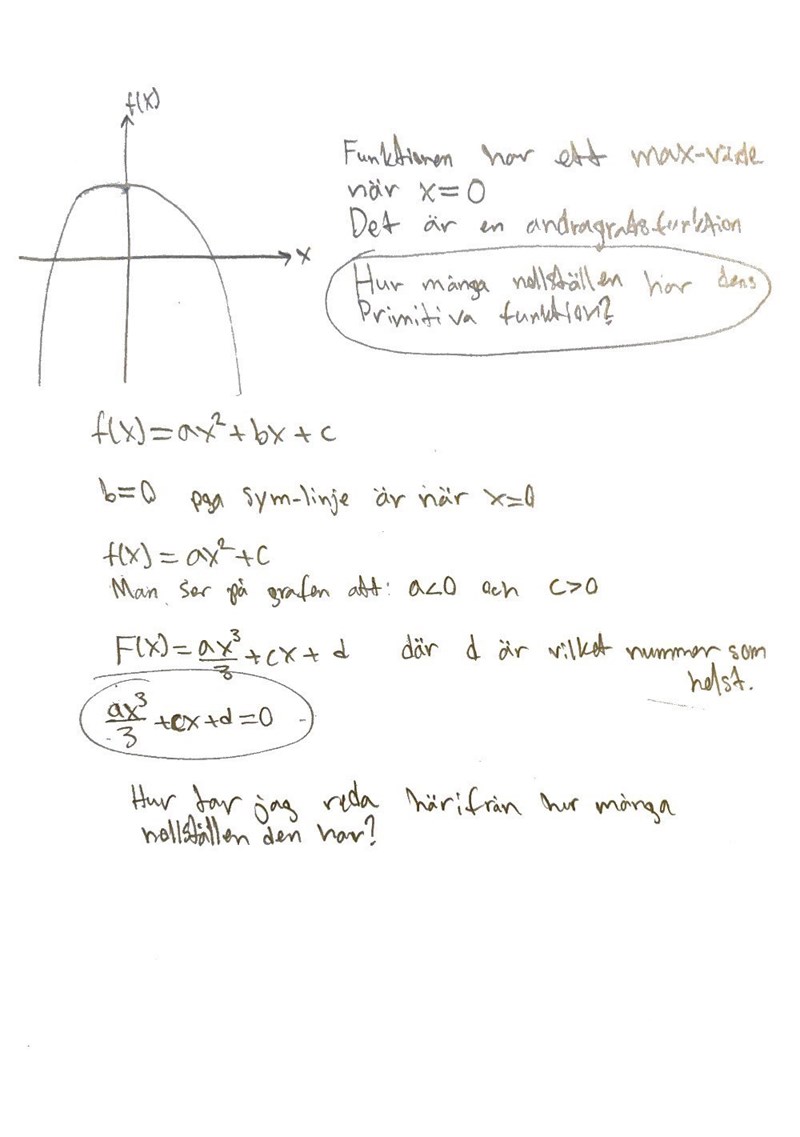 f(x)
x
Funktionen har ett max-värde
när x=0
Det är en andragratsfunktion
Hur många nollställen har dens
Primitiva funktion?
f(x)=ax²+bx+c
b=0 pga sym-linje är när x=0
f(x)=ax²+c
Man ser på grafen att: a<0 och c>0
F(x)=ax³/3+cx+d där d är vilket nummer som
helst.
ax³/3+cx+d=0
Hur tar jag reda härifrån hur många
nollställen den har?